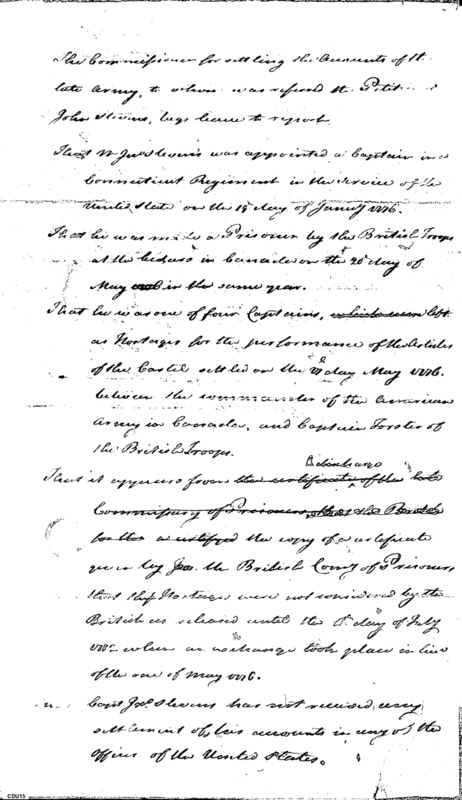 The Commissioner for settling the Accounts of the
late Army, to whom was refered the Petit
John Stevens, begs leave to report.
That Jno. Stevens was appointed a Captain in a
Connecticut Regiment in the service of the
United States on the day of Jany 1776.
That he was made a Prisoner by the British Troops
at the Cedars in Canada on the 20 day of
May in the same year.
That he was one of four Captains, which were left
as Hostages for the performance of the Articles
of the Cartel settled on the day May 1776.
between the commander of the American
Army in Canada, and Captain Forster of
the British Troops.
That it appears from the certificate of the late
Commissary of Prisoners, that the
a certified the copy of a certificate
given by the British Comy of Prisoners
that these Hostages were not considered by the
British as released until the day of July
when an exchange took place in lieu
of the one of May 1776.
Capt Jno. Stevens has not received any
settlement of his accounts in any of the
Offices of the United States.
CDU15